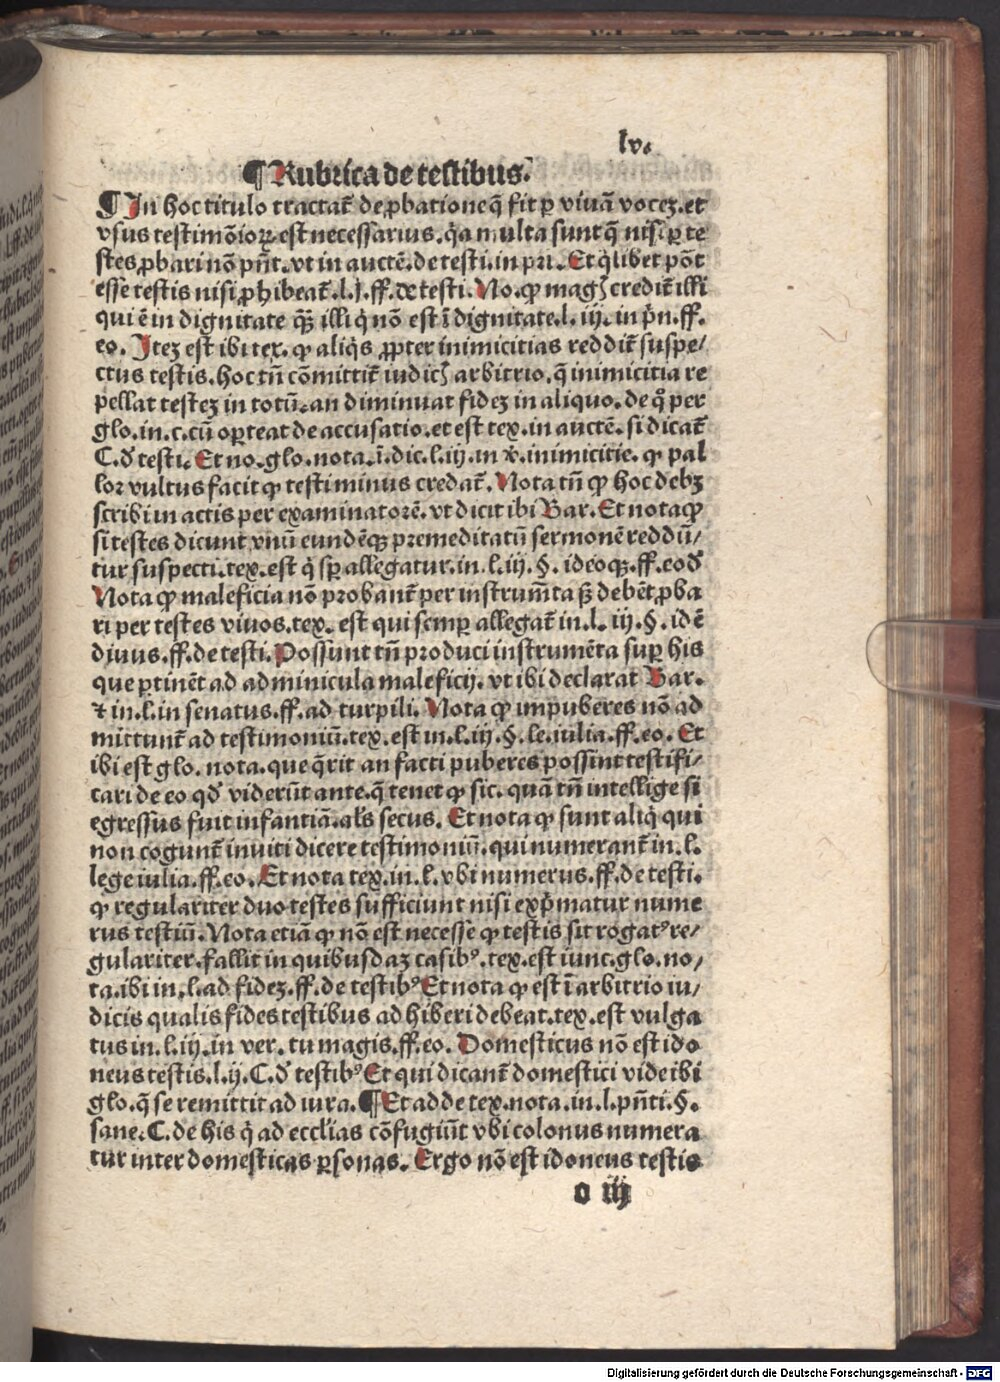 lv.
¶ Rubrica de testibus.
¶ In hoc titulo tractat᷑ de ꝓbatione q̄ fit ꝑ viuā voceꝫ. et
vsus testimōioꝝ est necessarius. q̇a multa sunt q̄ nisi ꝑ te
stes ꝓbari nō pn̄t. vt in auctē. de testi. in pri. Et q̇libet pōt
esse testis nisi ꝓhibeat᷑. l. j. ff. de testi. No. ꝙ magꝭ credit᷑ illi
qui ē in dignitate q̄ꝫ illi q̇ nō est ī dignitate. l. iij. in p̄n. ff.
eo. Iteꝫ est ibi tex. ꝙ aliq̇s ꝓpter inimicitias reddit᷑ suspe/
ctus testis. hoc tn̄ cōmittit᷑ iudicꝭ arbitrio. q̄ inimicitia re
pellat testeꝫ in totū. an diminuat fideꝫ in aliquo. de q̊ per
glo. in. c. cū oꝑteat de accusatio. et est tex. in auctē. si dicat᷑
C. đ testi. Et no. glo. nota. ī. dic. l. iij. in ꝟ. inimicitie. ꝙ pal
lor vultus facit ꝙ testi minus credat᷑. Nota tn̄ ꝙ hoc debꝫ
scribi in actis per examinatorē. vt dicit ibi Bar. Et nota ꝙ
si testes dicunt vnū eundēqꝫ premeditatū sermonē reddū/
tur suspecti. tex. est q̇ sꝑ allegatur. in. l. iij. §. ideoqꝫ. ff. eođ
Nota ꝙ maleficia nō probant᷑ per instrum̄ta sꝫ debēt ꝓba
ri per testes viuos. tex. est qui semꝑ allegat᷑ in. l. iij. §. idē
diuus. ff. de testi. Possunt tn̄ produci instrumēta suꝑ his
que ꝑtinēt ad adminicula maleficij. vt ibi declarat Bar.
⁊ in. l. in senatus. ff. ad turpili. Nota ꝙ impuberes nō ad
mittunt᷑ ad testimoniū. tex. est in. l. iij. §. le. iulia. ff. eo. Et
ibi est glo. nota. que q̄rit an facti puberes possint testifi/
cari de eo qđ viderūt ante. q̄ tenet ꝙ sic. quā tn̄ intellige si
egressus fuit infantiā. als̄ secus. Et nota ꝙ sunt aliq̇ qui
non cogunt᷑ inuiti dicere testimoniū. qui numerant᷑ in. l.
lege iulia. ff. eo. Et nota tex. in. l. vbi numerus. ff. de testi.
ꝙ regulariter duo testes sufficiunt nisi exp̄matur nume
rus testiū. Nota etiā ꝙ nō est necesse ꝙ testis sit rogatꝰ re/
gulariter. fallit in quibusdaꝫ casibꝰ. tex. est iunc. glo. no/
ta. ibi in. l. ad fideꝫ. ff. de testibꝰ Et nota ꝙ est ī arbitrio iu/
dicis qualis fides testibus adhiberi debeat. tex. est vulga
tus in. l. iij. in ver. tu magis. ff. eo. Domesticus nō est ido
neus testis. l. ij. C. đ testibꝰ Et qui dicant᷑ domestici vide ibi
glo. q̄ se remittit ad iura. ¶ Et adde tex. nota. in. l. pn̄ti. §.
sane. C. de his q̇ ad eccl̄ias cōfugiūt vbi colonus numera
tur inter domesticas ꝑsonas. Ergo nō est idoneus testis
o iij
Digitalisierung gefördert durch die Deutsche Forschungsgemeinschaft - DFG